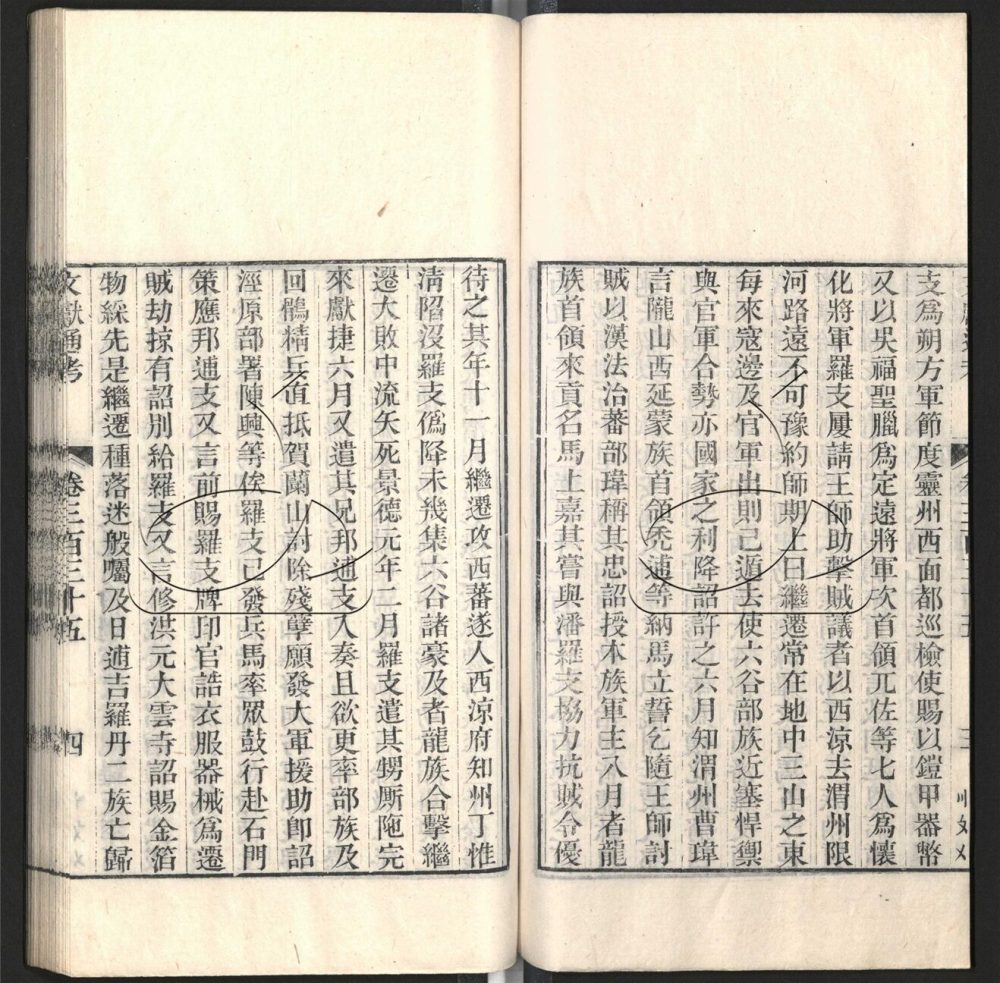 支爲朔方軍節度靈州西面都巡檢使賜以鎧甲器幣
又以吳福聖臘爲定遠將軍次首領兀佐等七人爲懷
化將軍羅支屢請王師助擊賊議者以西涼去渭州限
河路遠不可豫約師期上曰繼遷常在地中三山之東
每來寇邊及官軍出則已遁去使六谷部族近塞悍禦
與官軍合勢亦國家之利降詔許之六月知渭州曹瑋
言隴山西延蒙族首領禿逋等納馬立誓乞隨王師討
賊以漢法治蕃部瑋稱其忠詔授本族軍主八月者龍
族首領來貢名馬上嘉其嘗與潘羅支協力抗賊令優
待之其年十一月繼遷攻西蕃遂入西涼府知州丁惟
淸陷沒羅支僞降未幾集六谷諸豪及者龍族合擊繼
遷大敗中流矢死景德元年二月羅支遣其甥厮陁完
來獻捷六月又遣其兄邦逋支入奏且欲更率部族及
回鶻精兵直抵賀蘭山討除殘孽願發大軍援助卽詔
涇原部署陳興等俟羅支已發兵馬率眾鼓行赴石門
策應邦逋支又言前賜羅支牌印官誥衣服器械爲遷
賊劫掠有詔別給羅支又言修洪元大雲寺詔賜金箔
物綵先是繼遷種落迷般囑及日逋吉羅丹二族亡歸
文獻通考 卷三百三十五 四